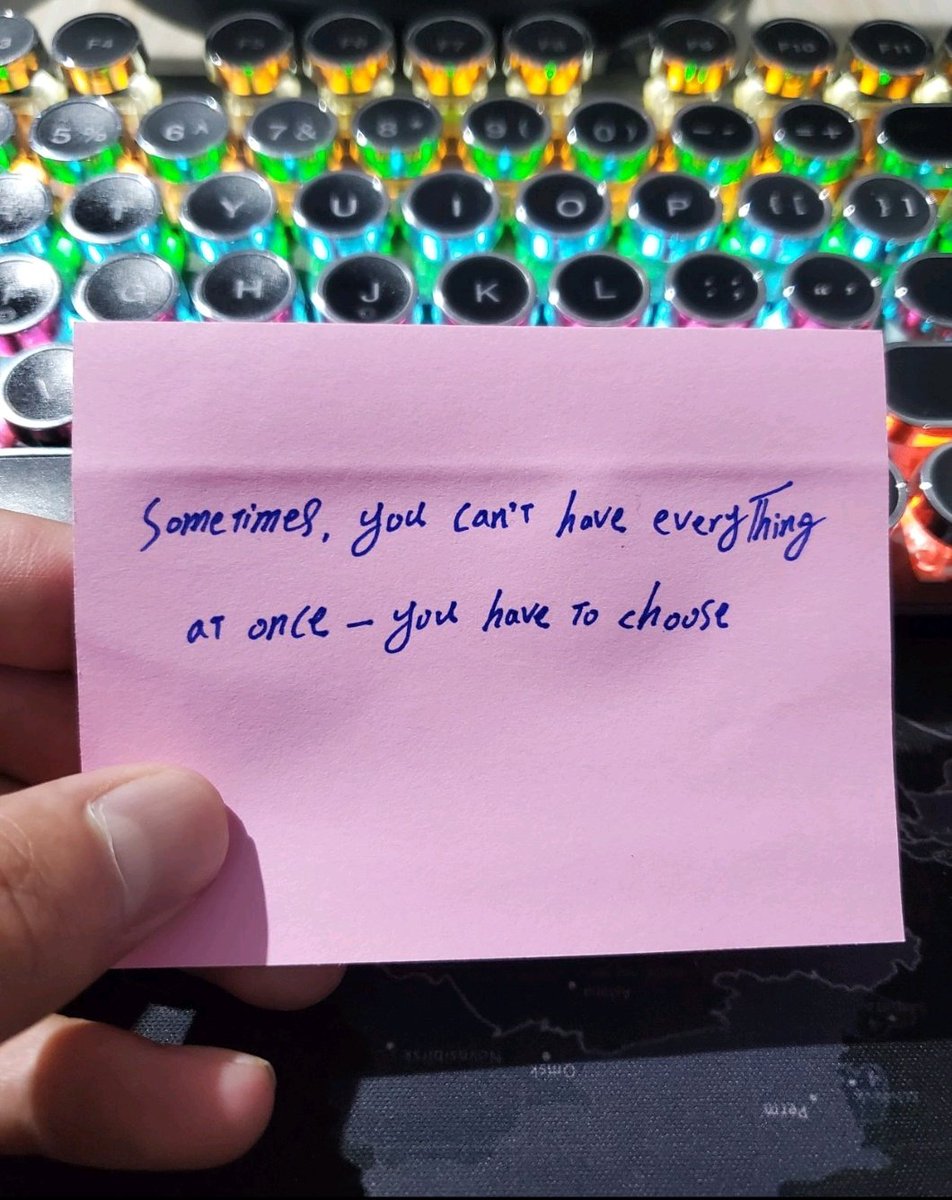 F4 F5 F6 F7 F8 F9 F10 F11
5 % 6 ^ 7 & 8 * 9 ( 0 ) - - = +
T Y U I O P { [ } ]
G H J K L : ; " '
Sometimes, you can't have everything
at once – you have to choose
Novosibirsk
Omsk
Perm